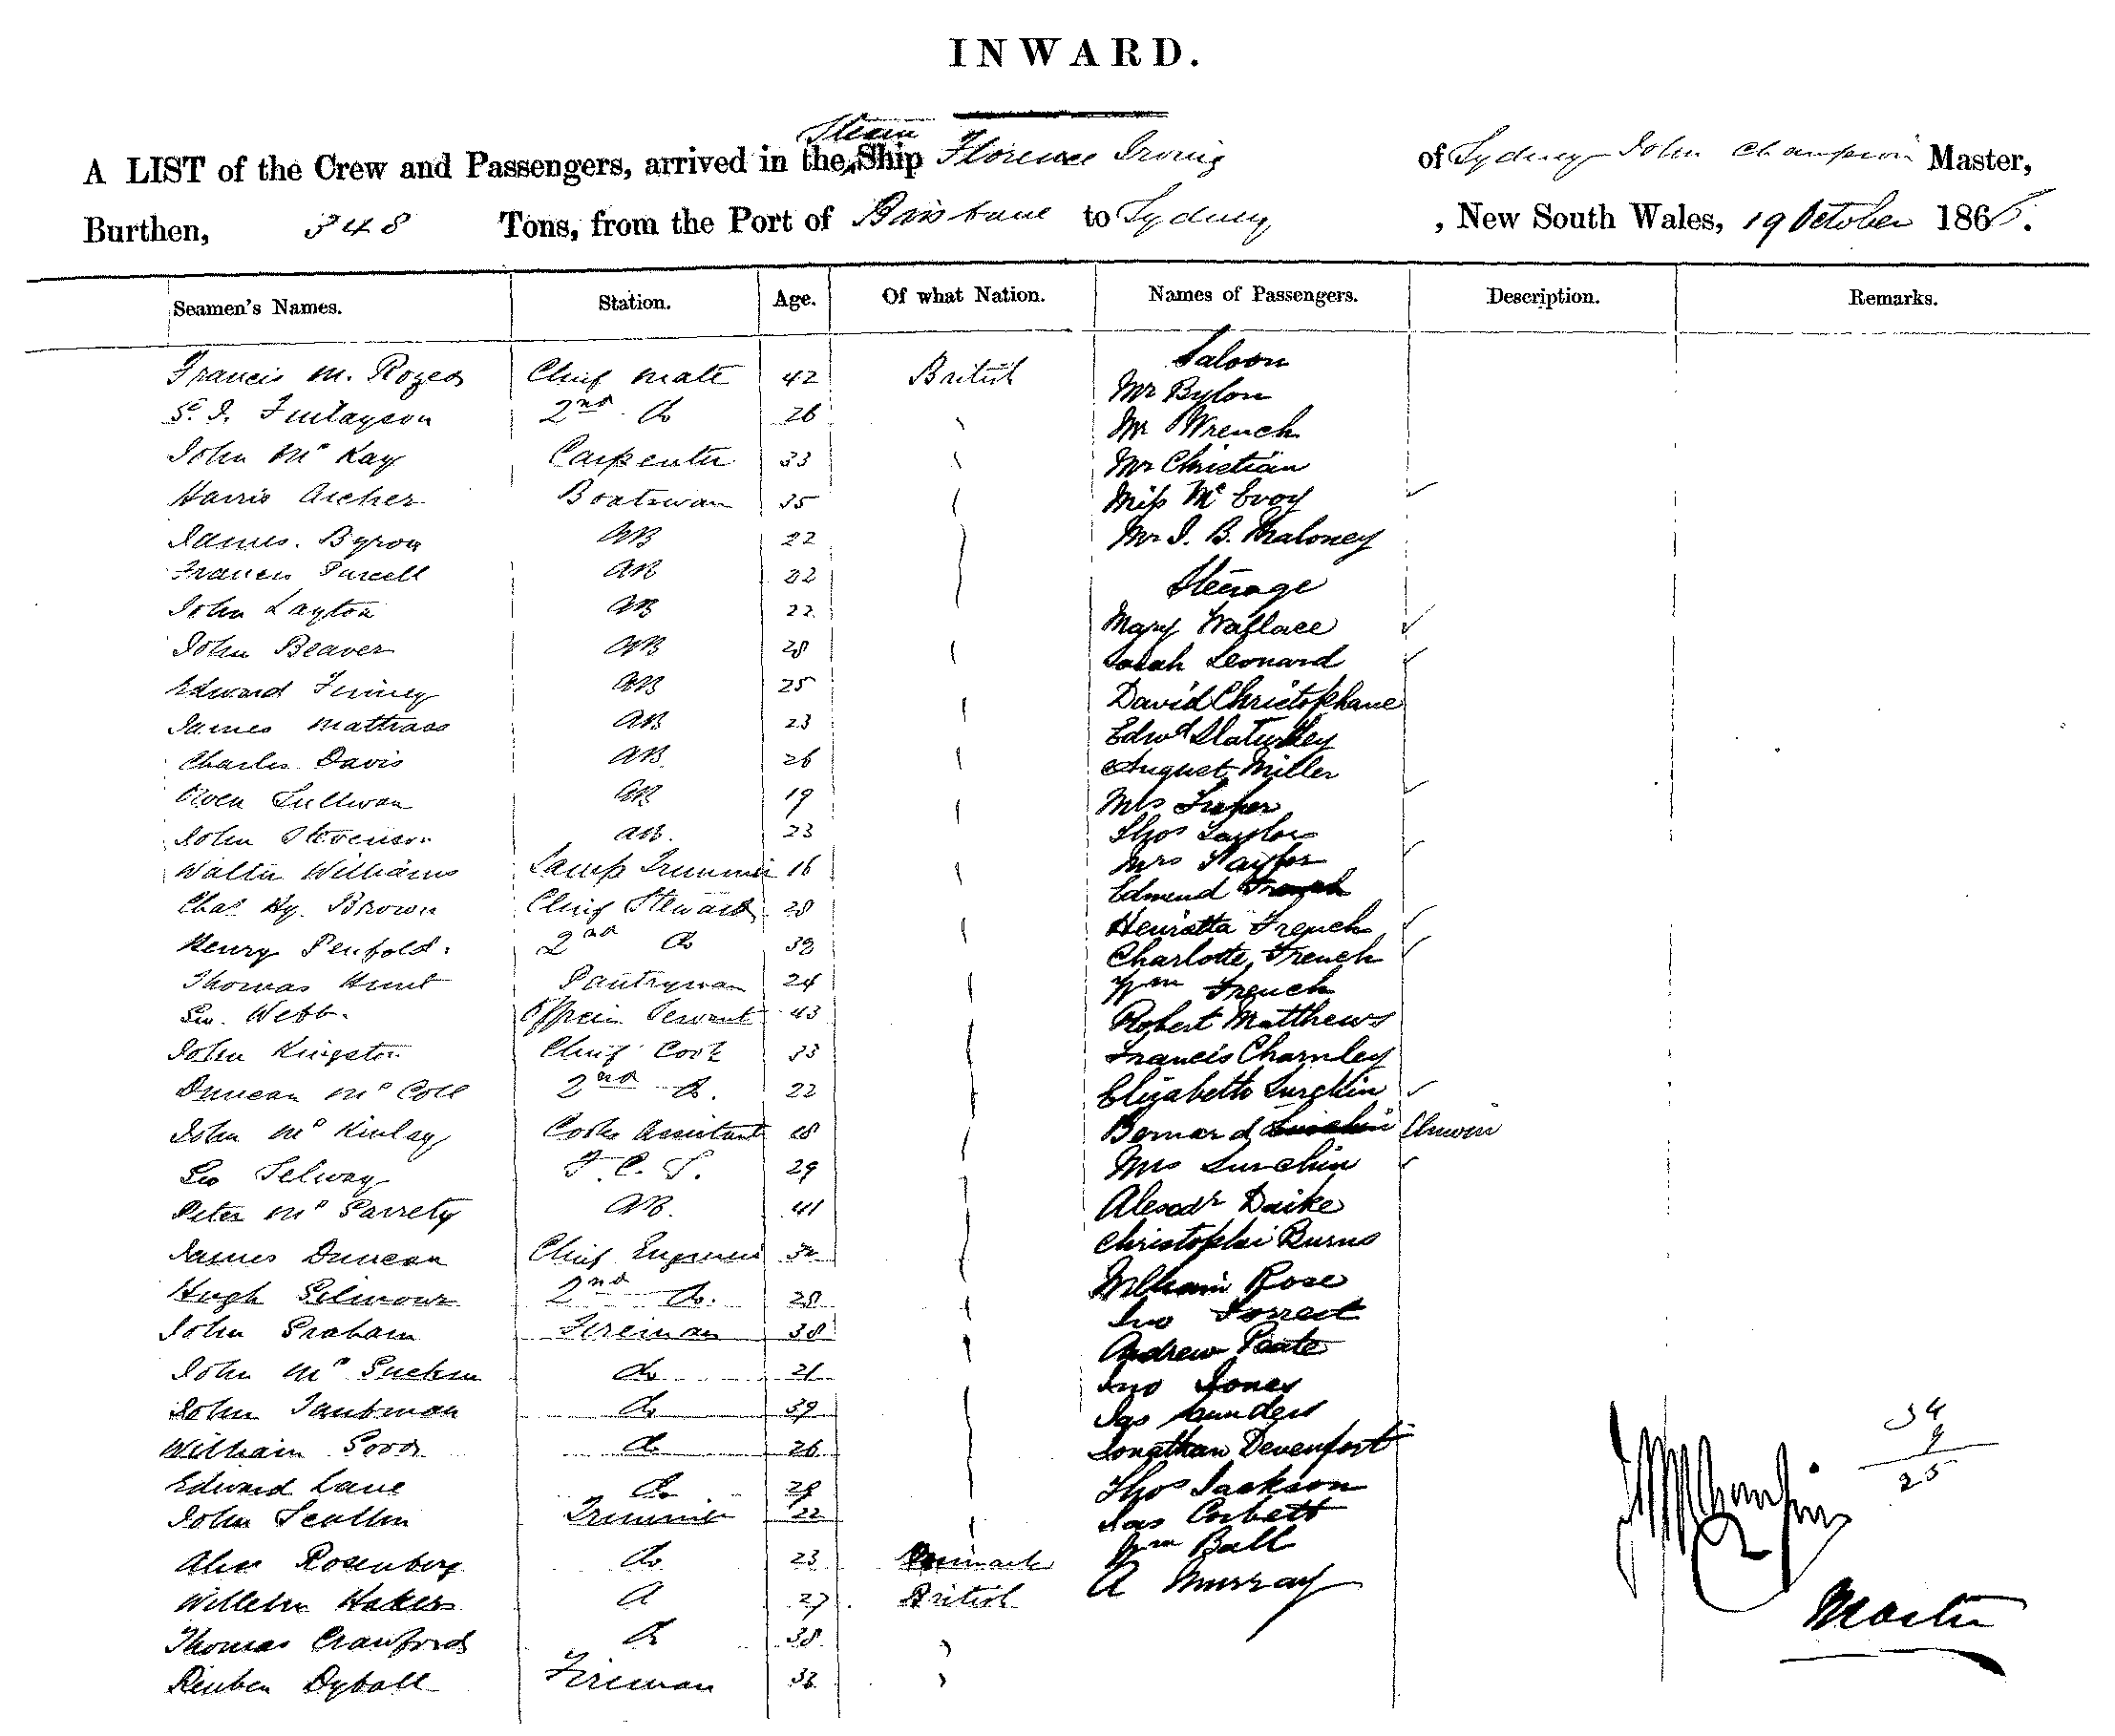 INWARD.
Steam
A LIST of the Crew and Passengers, arrived in the Ship Florence Irving of Sydney John Champion Master,
Burthen, 348 Tons, from the Port of Brisbane to Sydney , New South Wales, 19 October 186
Seamen's Names. Station. Age. Of what Nation. Names of Passengers. Description. Remarks.
Saloon
Francis M. Rogers Chief Mate 42 British Mr Bylon
Finlayson 2nd Do 26 Mr Wrench
John Mc Kay Carpenter 33 Mr Christian
Harris Archer Boatswan 35 Miss Mc Evoy
James Byron AB 22 Mr J. B. Maloney
Francis Purcell AB 22 Steerage
John Layton AB 22 Mary Wallace
John Beaver AB 28 Sarah Leonard
Edward AB 25 David Christophane
James Mattrass AB 23 Edwd
Charles Davis AB 26 August Miller
Owen Sullivan AB 19 Mrs
John Stevenson AB. 23 Thos Taylor
Walter Williams Lamp Trimmer 16 Mrs Taylor
Chas Hy. Brown Chief Steward 28 Edmund French
Henry Penfold 2nd Do 39 Henrietta French
Thomas Hunt Pantryman 24 Charlotte French
Geo. Webb Servant 43 Wm French
John Kingston Chief Cook 33 Robert Matthews
Duncan Mc Coll 2nd Do. 22 Francis Charnley
John Mc Kinlay Cooks Assistant 28 Elizabeth
Geo Selway 29 Bernard
Peter Mc Garrety AB. 41 Mrs
James Duncan Chief Engineer Daike
Hugh Gilmour 2nd Do. 28 Christopher Burns
John Graham Fireman 38 William Rose
John Mc Do 21 Jno Forrest
John Taubman Do 39 Andrew Peate
William Good Do 26 Jno Jones
Edward Lane Do 29 Jas Saunders
John Scullin Trimmer 22 Jonathan Devenport
Alex Rosenberg Do 23 Denmark Thos Jackson
Willelm Hakers 27 British Jas Corbett
Thomas Crawford Do 38 Wm Ball
Reuben Dyball Fireman A Murray
34
9
25
Champion
Master